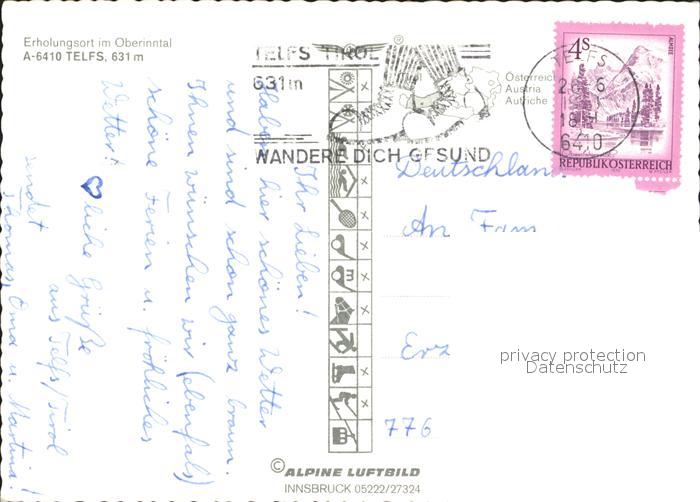 Erholungsort im Oberinntal
A-6410 TELFS, 631 m
TELFS TIROL
631m
WANDERE DICH GESUND
Österreich
Austria
Autriche
TELFS
6410
4S
ALMSEE
REPUBLIK ÖSTERREICH
Ihr Lieben!
Haben hier schönes Wetter
und sind schon ganz braun.
Ihnen wünschen wir (ebenfalls)
schöne Ferien u. fröhliches
Wetter!
♥liche Grüße
aus Telfs/Tirol
sendet
Oma u. Martina!
Deutschland
An Fam
Erz
776
privacy protection
Datenschutz
© ALPINE LUFTBILD
INNSBRUCK 05222/27324